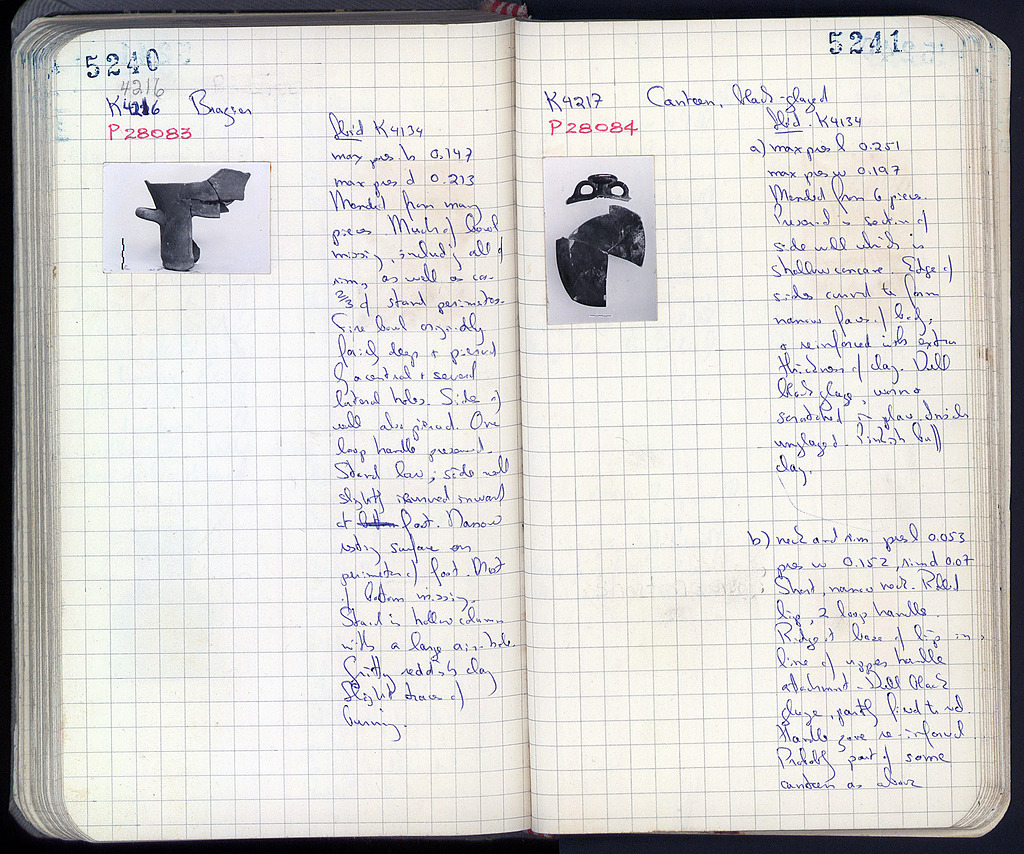 5240
4216
K4216 Brazier
P 28083
Ibid K4134
max pres h 0.147
max pres d 0.213
Mended from many
pieces. Much of bowl
missing, including all of
rim, as well as ca.
2/3 of stand perimeter.
Fire bowl originally
fairly deep + pierced
by a central + several
lateral holes. Side of
wall also pierced. One
loop handle preserved.
Stand low; side wall
slightly inward
at foot. Narrow
resting surface on
perimeter of foot. Most
of bottom missing.
Stand is hollow column
with a large air-hole.
Gritty reddish clay
Slight traces of
burning.
5241
K4217 Canteen, black-glazed
P 28084
Ibid. K4134
a) max pres l 0.251
max pres w 0.197
Mended from 6 pieces.
Preserved is section of
side wall which is
shallow concave. Edge of
sides curved to form
narrow faces of body,
+ reinforced with extra
thickness of clay. Dull
black glaze, worn +
scratched in places. Inside
unglazed. Pinkish buff
clay.
b) neck and rim pres l 0.053
pres w 0.152, rim d 0.07
Short, narrow neck. Rolled
lip, 2 loop handles.
Ridge at base of lip in
line of upper handle
attachment. Dull black
glaze, partly fired to red.
Handle zone re-inforced
Probably part of same
canteen as above